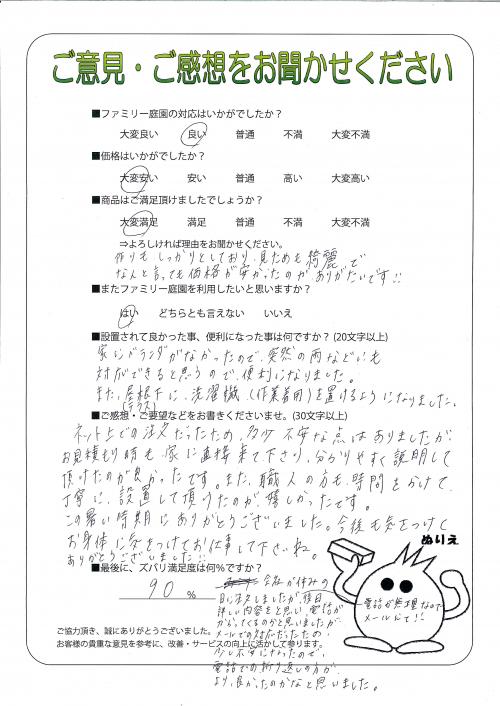 ご意見・ご感想をお聞かせください
■ファミリー庭園の対応はいかがでしたか？
大変良い 良い 普通 不満 大変不満
■価格はいかがでしたか？
大変安い 安い 普通 高い 大変高い
■商品はご満足頂けましたでしょうか？
大変満足 満足 普通 不満 大変不満
⇒よろしければ理由をお聞かせください。
作りもしっかりとしており、見ためも綺麗で
なんと言っても価格が安かったのがありがたいです!!
■またファミリー庭園を利用したいと思いますか？
はい どちらとも言えない いいえ
■設置されて良かった事、便利になった事は何ですか？(20文字以上)
家にベランダがなかったので、突然の雨などにも
対応ができると思うので、便利になりました。
また、屋根下に、洗濯機(作業着用)を置けるようになりました。
(テラス)
■ご感想・ご要望などをお書きくださいませ。(30文字以上)
ネット上での注文だったため、多少不安な点はありましたが、
お見積もり時も、家に直接来て下さり、分かりやすく説明して
頂けたのが良かったです。また、職人の方も、時間をかけて、
丁寧に、設置して頂けたのが嬉しかったです。
この暑い時期にありがとうございました。今後も気をつけて
お身体に気をつけてお仕事して下さいね。
ありがとうございました。
■最後に、ズバリ満足度は何％ですか？
90 %
会社が休みの
日に注文しましたが、後日
詳しい内容をと思い、電話が
かかってくるのかと思いましたが
メールでの対応だったため
少し不安になったので、
電話での折り返しの方が
より良かったのかなと思いました。
ぬりえ
電話が無理なので
メールにて!!
ご協力頂き、誠にありがとうございました。
お客様の貴重な意見を参考に、改善・サービスの向上に活かして参ります。